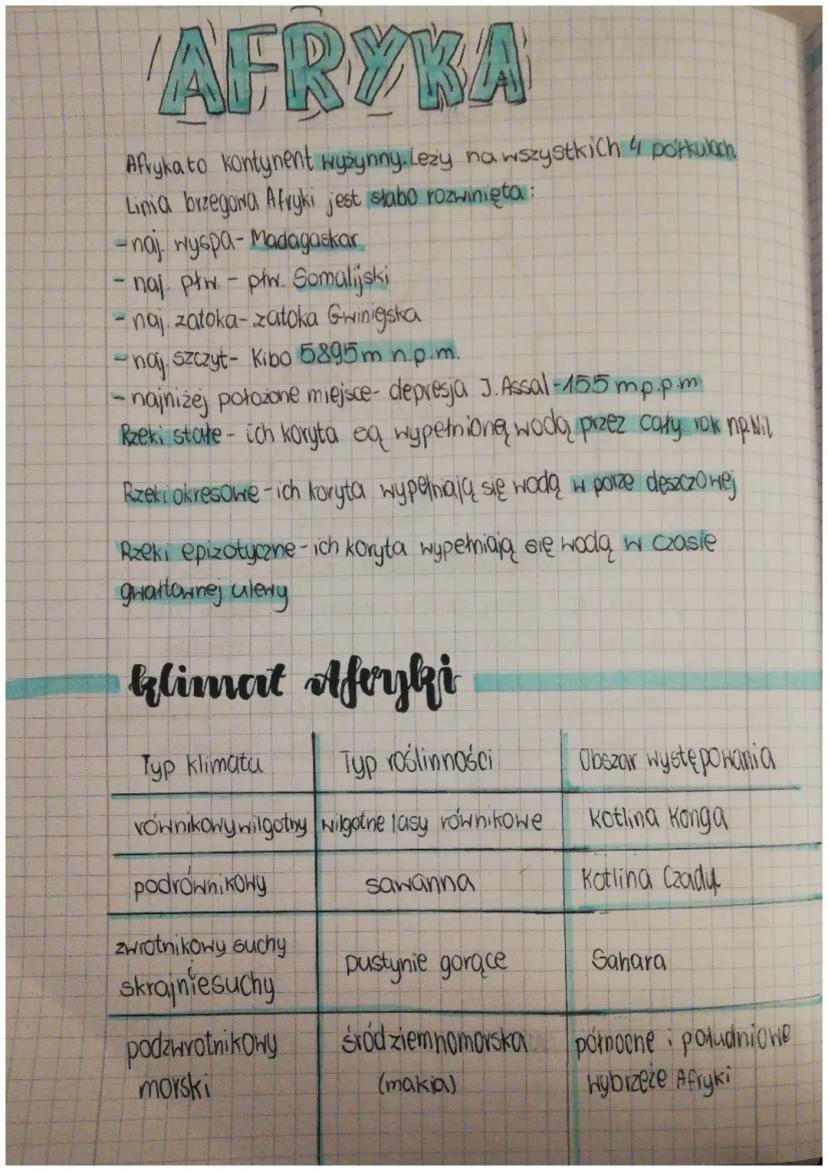 AFRYKA
Afryka to kontynent wyżynny. Leży na wszystkich 4 półkulach.
Linia brzegowa Afryki jest słabo rozwinięta:
- naj. wyspa - Madagaskar
- naj. płw. - płw. Somalijski
- naj. zatoka - zatoka Gwinejska
- naj. szczyt - Kibo 5895 m n.p.m.
- najniżej położone miejsce - depresja J. Assal -155 m p.p.m
Rzeki stałe - ich koryta są wypełnioną wodą przez cały rok np. Nil
Rzeki okresowe - ich koryta wypełniają się wodą w porze deszczowej
Rzeki epizotyczne - ich koryta wypełniają się wodą w czasie
gwałtownej ulewy
klimat Afryki
Typ klimatu Typ roślinności Obszar występowania
równikowy wilgotny wilgotne lasy równikowe kotlina Konga
podrównikowy sawanna Kotlina Czadu
zwrotnikowy suchy i skrajnie suchy pustynie gorące Sahara
podzwrotnikowy morski śródziemnomorska (makia) północne i południowe wybrzeże Afryki